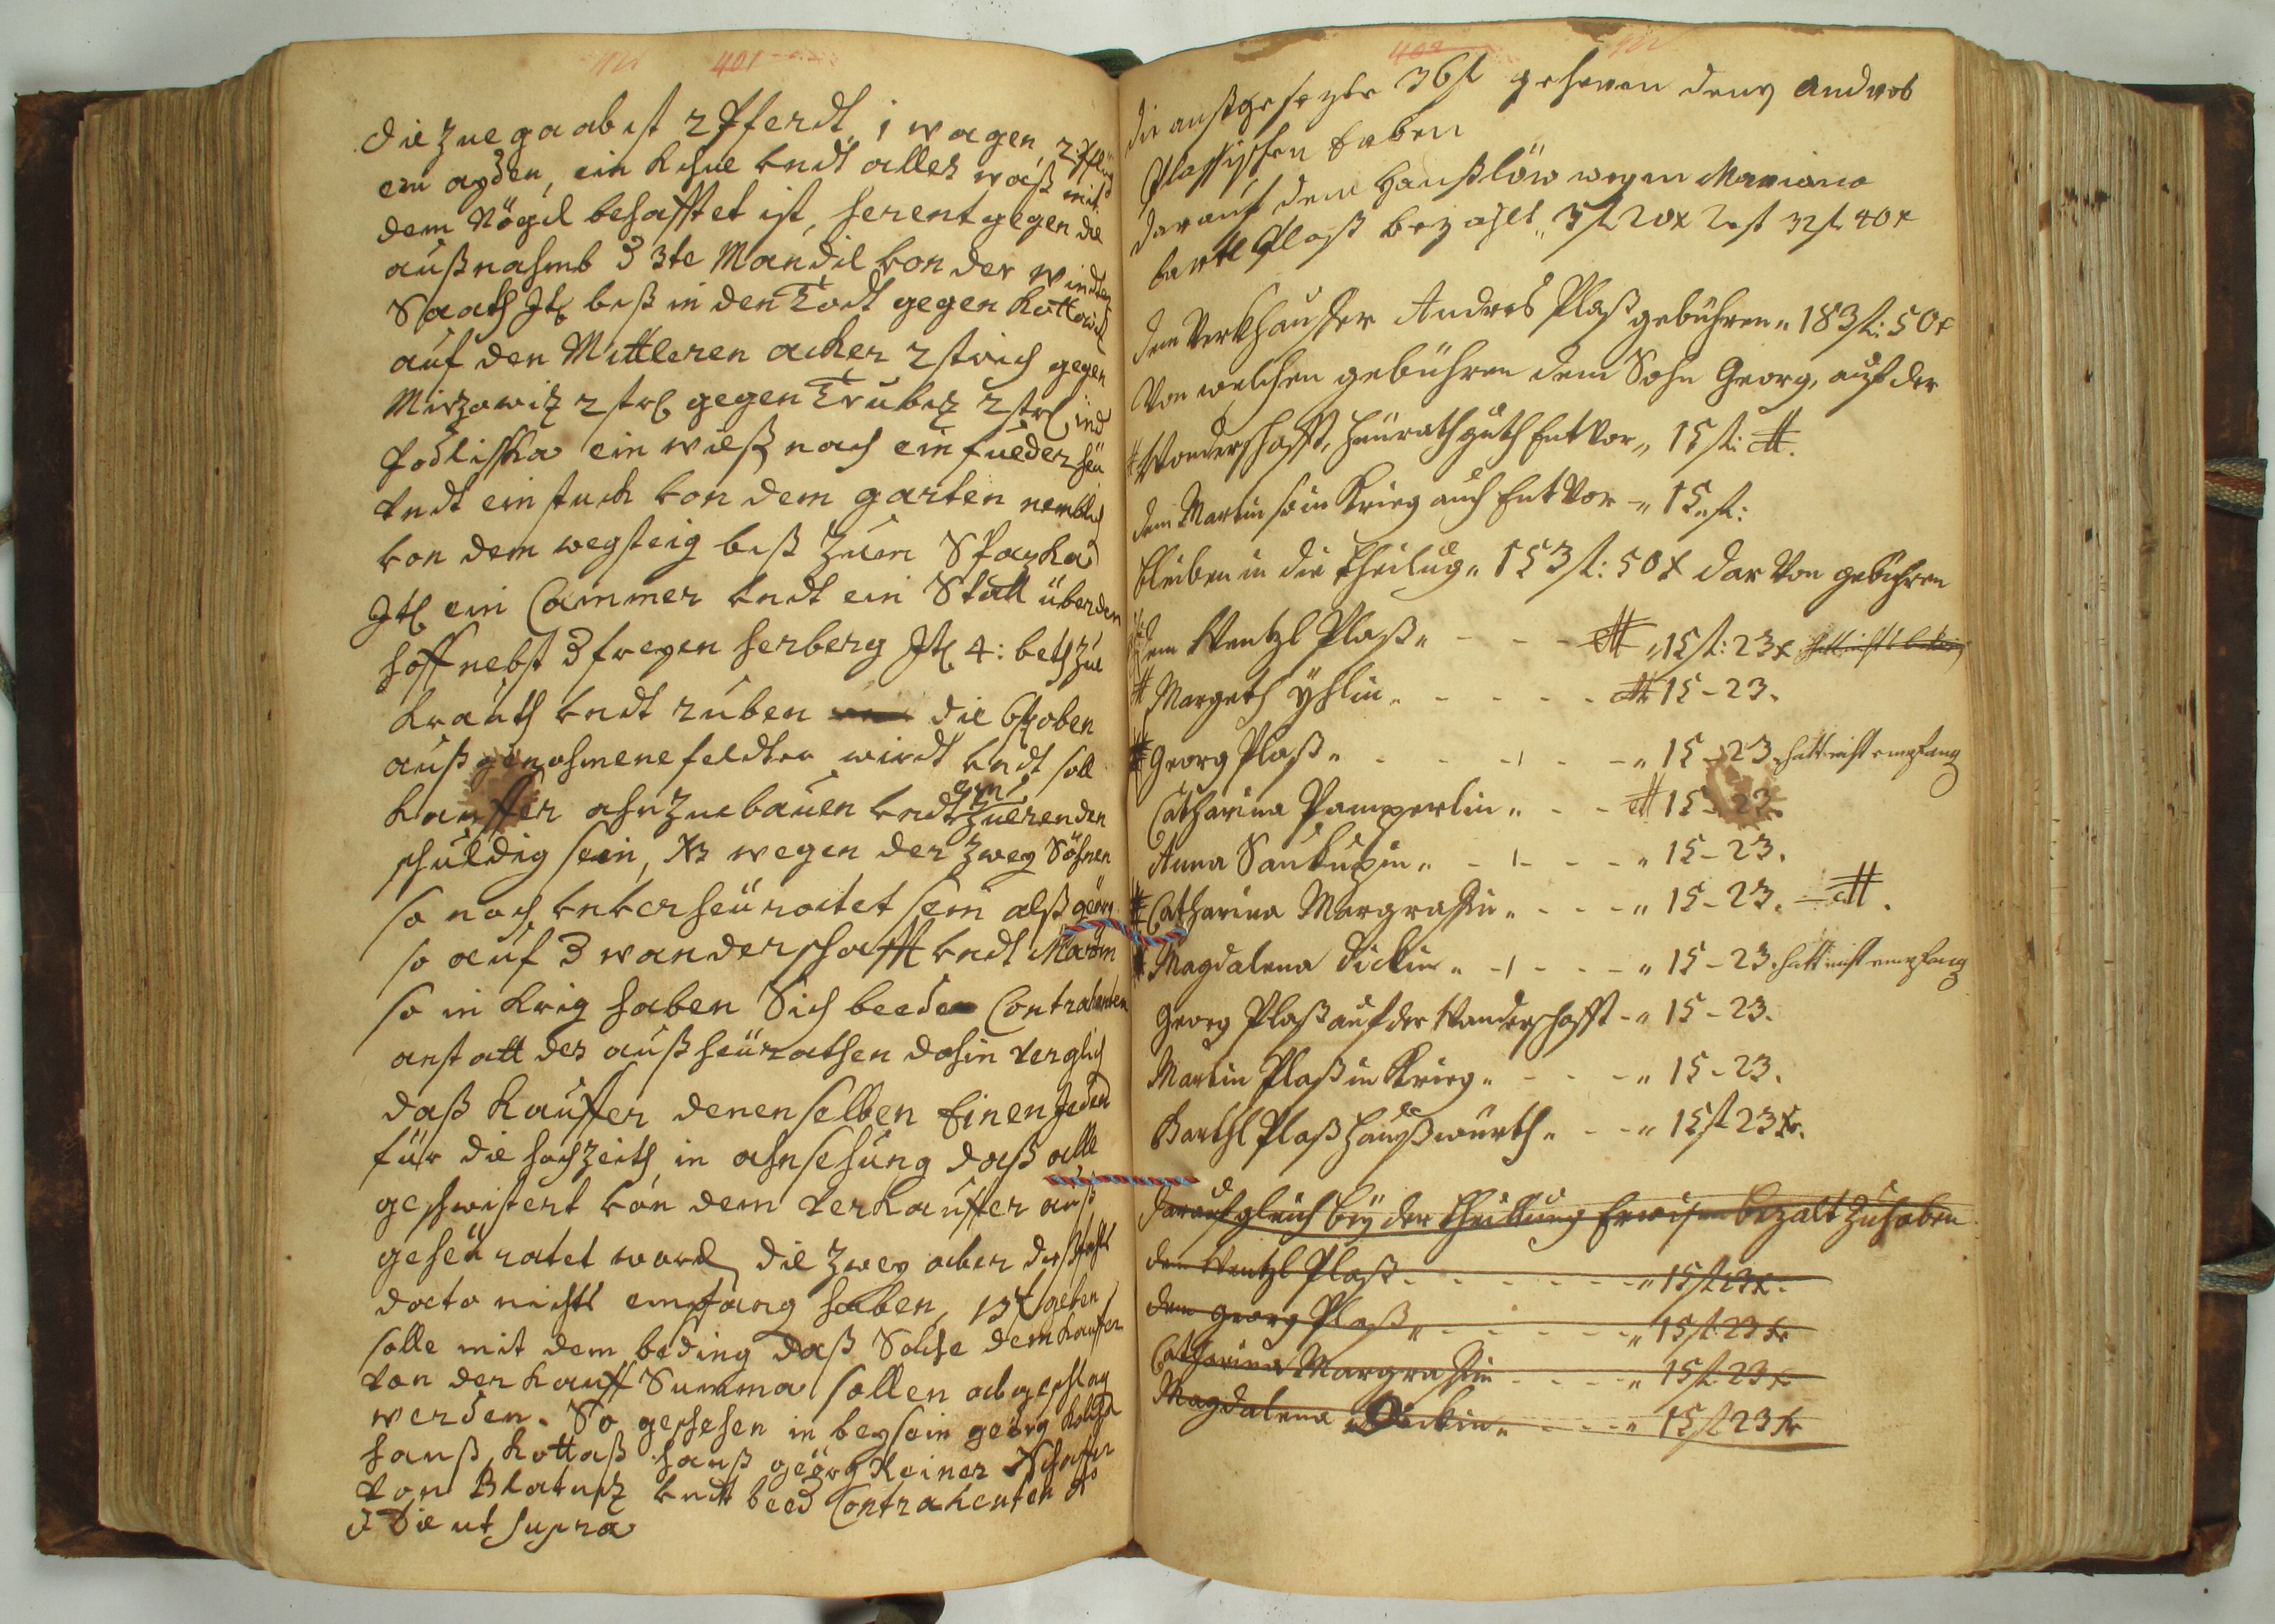 401
die zue gaab ist 2 Pferdt, 1 wagen, 2 Pflüg
ein ayden, ein Khue undt alles waß mit
dem Nögil behafftet ist, herent gegen die
außnahmb d 3te Mandil von der windter
Saath Jt biß in den Todt gegen Kottowitz
auf den Mittleren acker 2 strich gegen
Mirzowitz 2 str gegen Trubez 2 str ind
Podliska ein wieß nach ein fueder heü
undt ein stuck von dem garten nemblich
von dem wegsteig biß zum Spayka
Jt ein Cammer undt ein Stall über den
hoff nebst d freyen herberg Jt 4: beth zue
Krauth undt ruben die Oboben
außgenohmene feldter wirdt undt soll
Kauffer ahnzuebauen undt ein zuerenden
schuldig sein, NB wegen der zwey Söhnen
so noch unverheüratet sein alß georg
so auf d wanderschafft undt Martin
so in Krig haben Sich beede Contrahenten
anstatt des außheürathen dahin verglich
daß Kauffer denenselben Einen Jeden
für die hochzeith in ahnsehung daß alle
geschwistert von dem verkauffer auß
geheüratet word, die zwey aber diß
dato nichts empfang haben, 15 f geben
solle mit dem beding daß Solche dem Kauffer
von der Kauff Summa sollen abgeschlag
werden. So geschehen in beysein georg
hanß Kottaß hanß georg Steiner
von Blatnitz undt beed Contrahenten
Die ut supra
402
die außgesezte 36 f gehören deny Andres
Plassischen Erben
darauf dem Haußlöw wegen Mariana
Bartl Plaß bezahlt „ 3 f 20 x Rest 32 f 40 x
dem Verkhauffer Andres Plaß gebühren „ 183 f: 50 x
Von welchen gebühren dem Sohn Georg, auf der
Wanderschafft, heürathguth EntVor „ 15 f:
dem Martin so in Krieg auch EntVor - „ 15 „ f:
bleiben in die theilug „ 153 f: 50 x dar Von gebühren
dem Wentzl Plaß „ - - - „ 15 f: 23 x
Margeth „ - - - - 15 - 23.
Georg Plaß „ - - - - „ 15 - 23. hatt nicht empfang
Catharina Pamperlin „ - - 15 - 23.
Anna Saukupin „ - - - - „ 15 - 23.
Catharina Margrastin „ - - - „ 15 - 23.
Magdalena Dickin „ - - - - „ 15 - 23. hatt nicht empfang
Georg Plaß auf der Wanderschafft - „ 15 - 23.
Martin Plaß in Krieg „ - - - „ 15 - 23.
Barthl Plaß Haußwürth „ - - „ 15 f 23 x.
darauf gleich beÿ der theillung Erwisen bezalt zu haben
dem Wentzl Plaß - - - - - „ 15 f 23 x.
dem georg Plaß „ - - - - - „ 15 f 23 x
Catharina Margrastin - - - - „ 15 f 23 x
Magdalena Dickin „ - - - „ 15 f 23 x